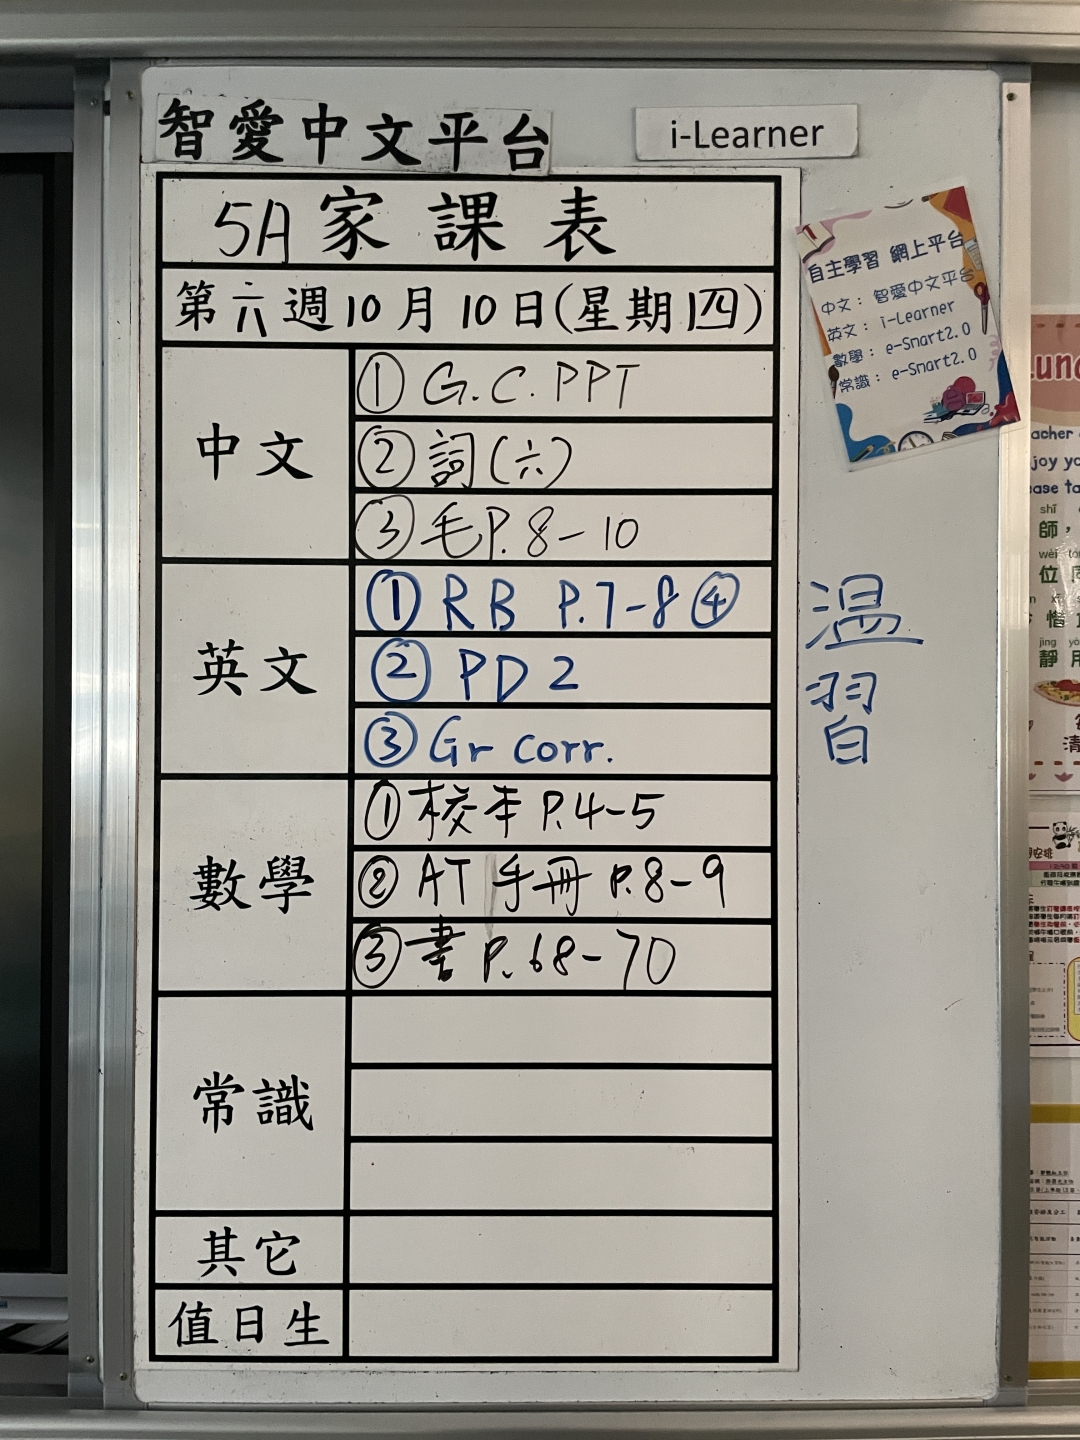 智愛中文平台
i-Learner
5A 家課表
第六週10月10日(星期四)
中文
① G.C. PPT
② 詞(六)
③ 毛P.8-10
英文
① RB P.7-8 ④
② PD 2
③ Gr corr.
數學
① 校本 P.4-5
② AT 手冊 P.8-9
③ 書 P.68-70
常識
其它
值日生
自主學習 網上平台
中文： 智愛中文平台
英文： i-Learner
數學： e-Smart2.0
常識： e-Smart2.0
溫
習
shī
師，
wèi
位
惜
jìng
靜 用
清